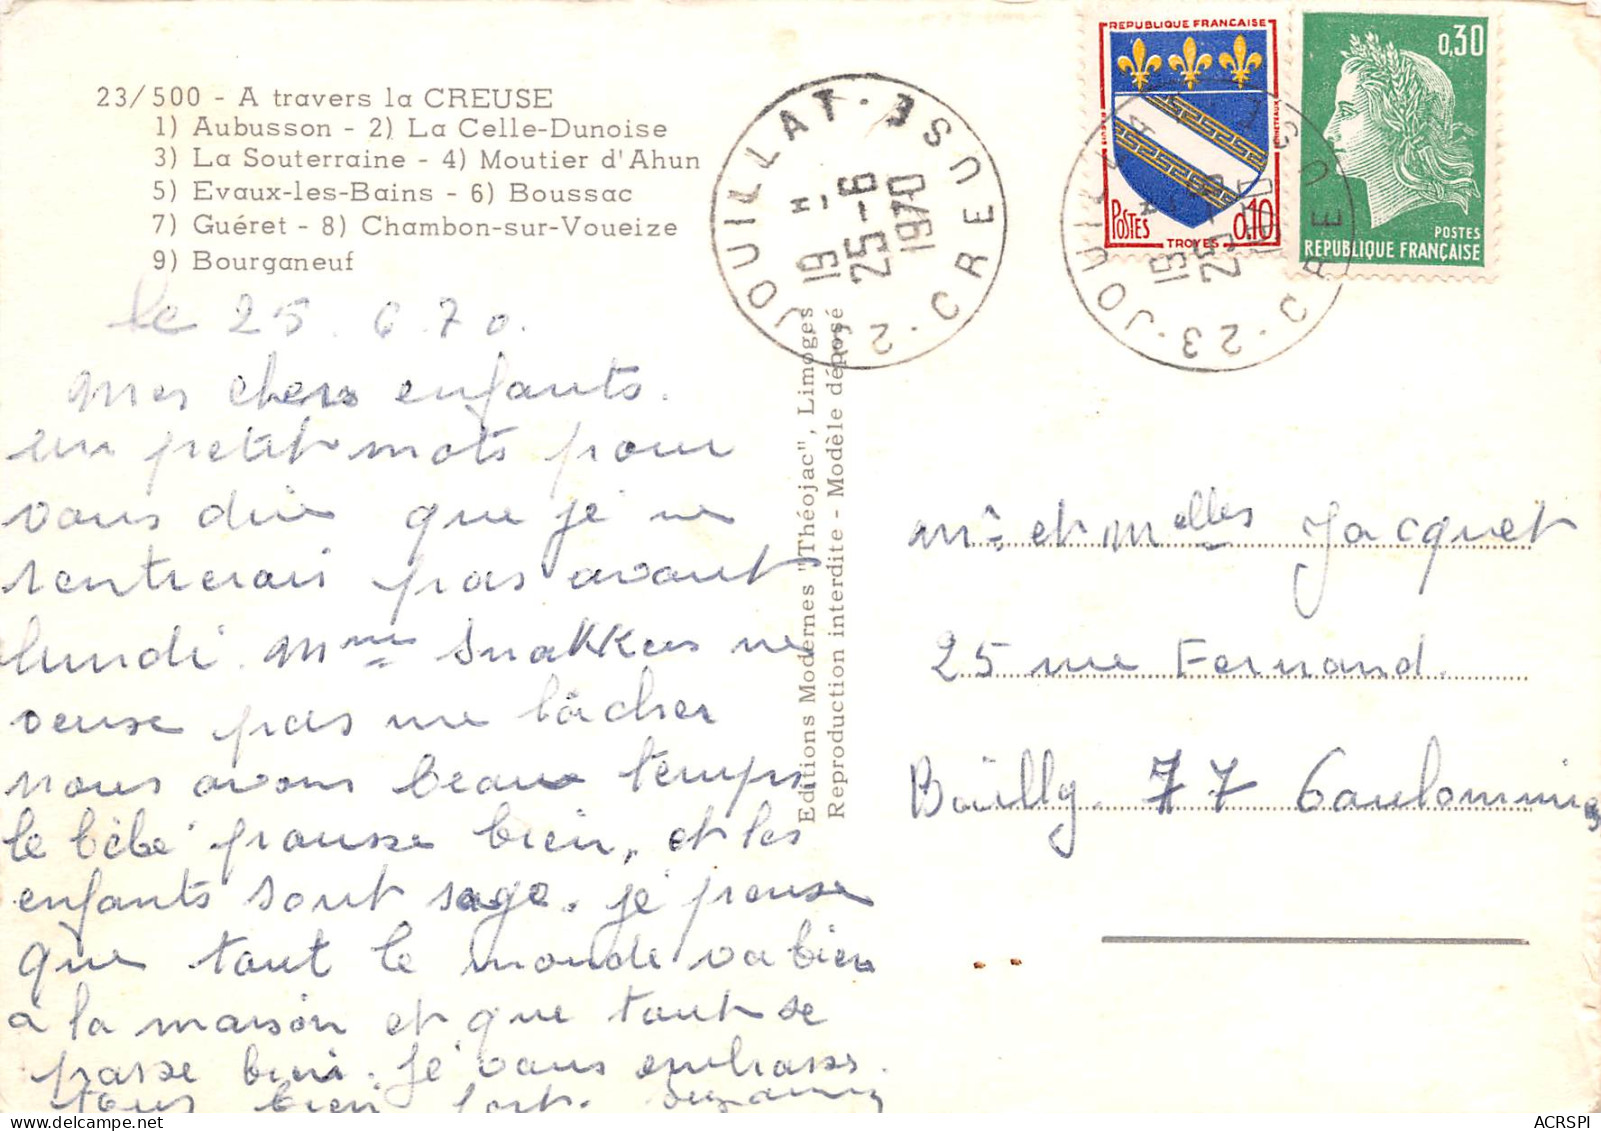 23/500 - A travers la CREUSE
1) Aubusson - 2) La Celle-Dunoise
3) La Souterraine - 4) Moutier d'Ahun
5) Evaux-les-Bains - 6) Boussac
7) Guéret - 8) Chambon-sur-Voueize
9) Bourganeuf
le 25.6.70.
Mes chers enfants.
un petit mots pour
vous dire que je ne
rentrerais pas avant
lundi. Mme ne
veuse pas me lâcher
nous avons beau temps
le bébé pousse bien, et les
enfants sont sage. je pense
que tout le monde va bien
à la maison et que tout se
passe bien. je vous embrasse
tous bien fort. Suzanne
Editions Modernes "Théojac", Limoges
Reproduction interdite - Modèle déposé
JOUILLAT · CREUSE · 23
19 H
25-6
1970
REPUBLIQUE FRANCAISE
POSTES 0,10
TROYES
0,30
POSTES
REPUBLIQUE FRANÇAISE
JOUILLAT · CREUSE · 23
19 H
25-6
1970
Mr et Melles Jacquet
25 rue Fernand
Bailly 77 Coulommiers
ACRSPI